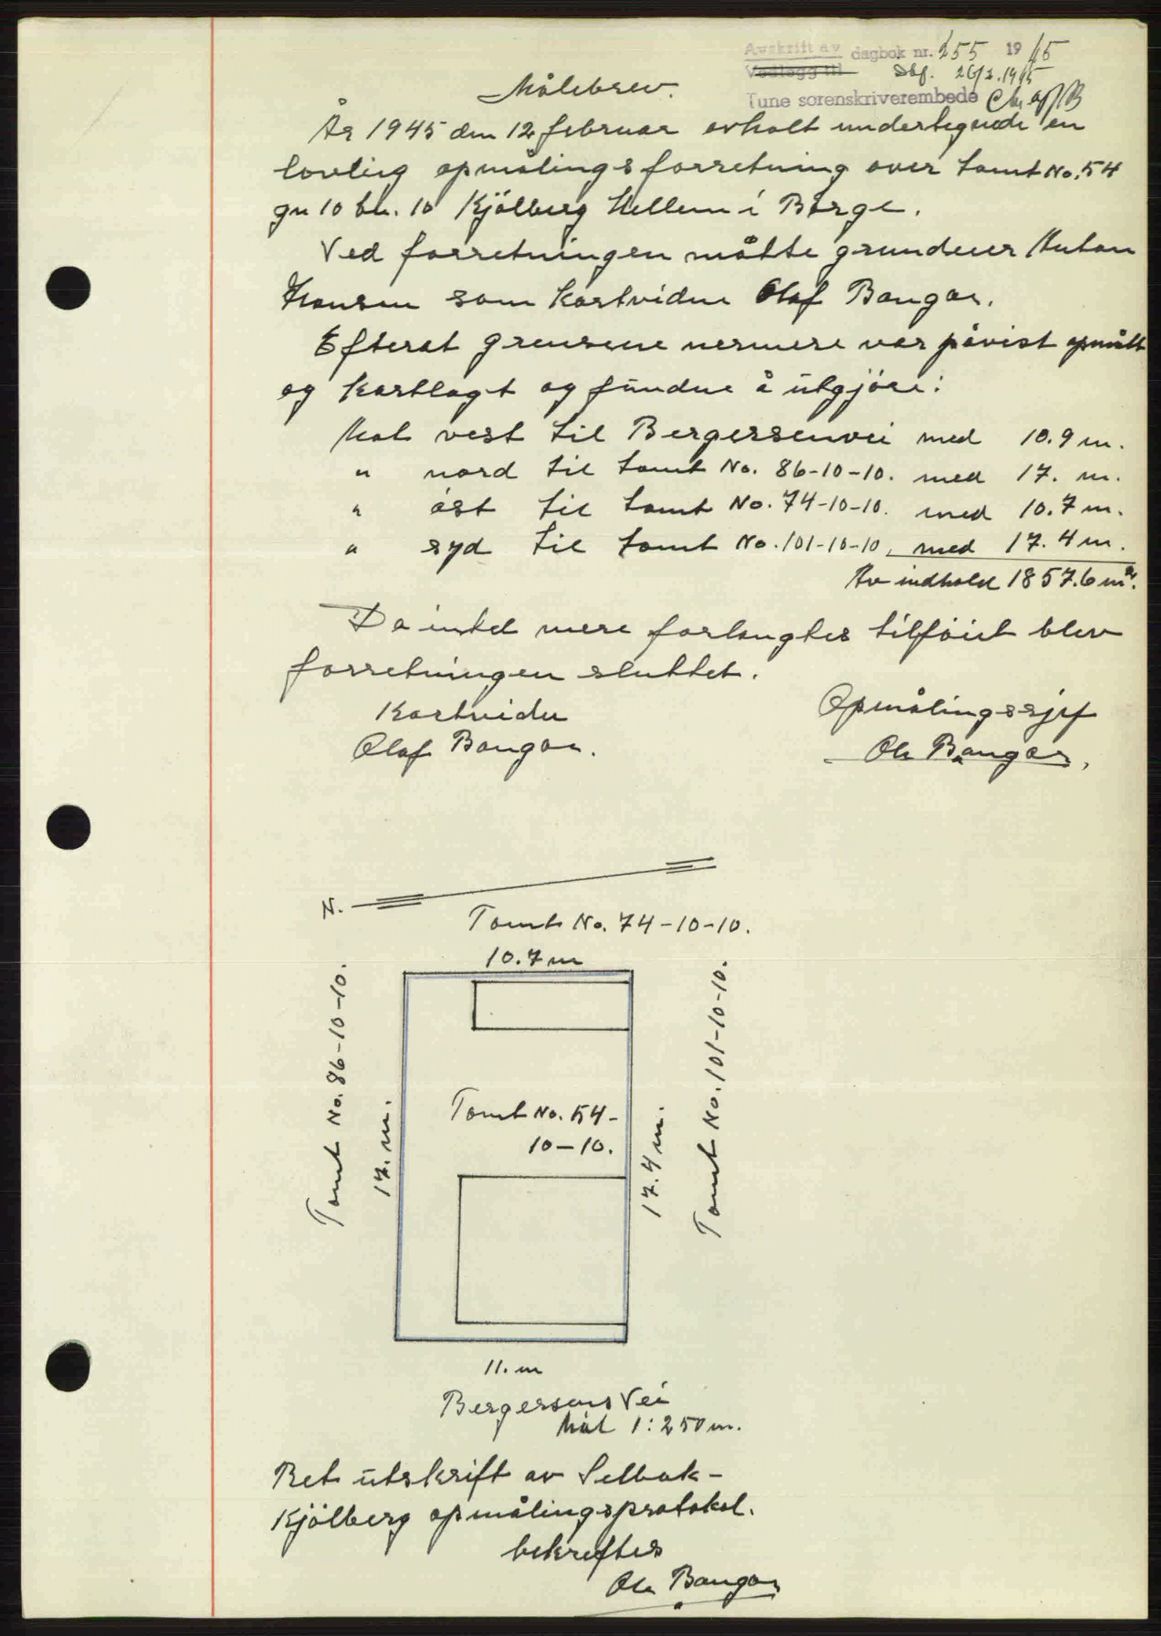 Avskrift av dagbok nr. 255 1945
Vedlegg til Dbf. 26/2. 1945
Tune sorenskriverembede
Målebrev.
År 1945 den 12 februar avholt undertegnede en
lovlig opmålingsforretning over tomt No. 54
gn 10 bn. 10 Kjölberg Hellem i Borge.
Ved forretningen måtte grundeier Anton
Hansen som kartvidne Olaf Bangar.
Efterat grensene nermere var påvist opmålt
og kartlagt og fundne å utgjöre:
Mot vest til Bergersenvei med 10.9 m.
" nord til tomt No. 86-10-10. med 17. m.
" öst til tomt No. 74-10-10. med 10.7 m.
" syd til tomt No. 101-10-10, med 17.4 m.
Av indhold 1857.6 m².
Da intet mere forlangtes tilföiet blev
forretningen sluttet.
Kartvidne Opmålingssjef
Olaf Bangar. Ole Bangar,
N.
Tomt No. 74-10-10.
10.7 m
Tomt No. 86-10-10.
17. m.
Tomt No. 54-
10-10.
17.4 m.
Tomt No. 101-10-10.
11. m
Bergersens Vei
Mål 1:250 m.
Ret utskrift av Selbak-
Kjölberg opmålingsprotokol.
bekreftes
Ole Bangar